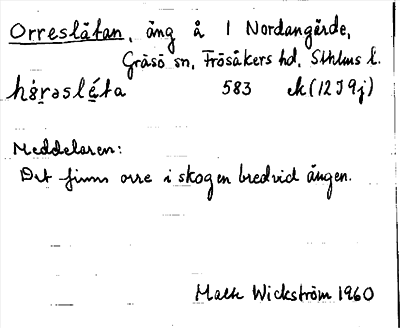 Orreslåtan, äng å 1 Nordangärde,
Gräsö sn, Frösåkers hd, Sthlms l.
583 ek (12J9j)
Meddelaren:
Det finns orre i skogen bredvid ängen.
Wickström 1960